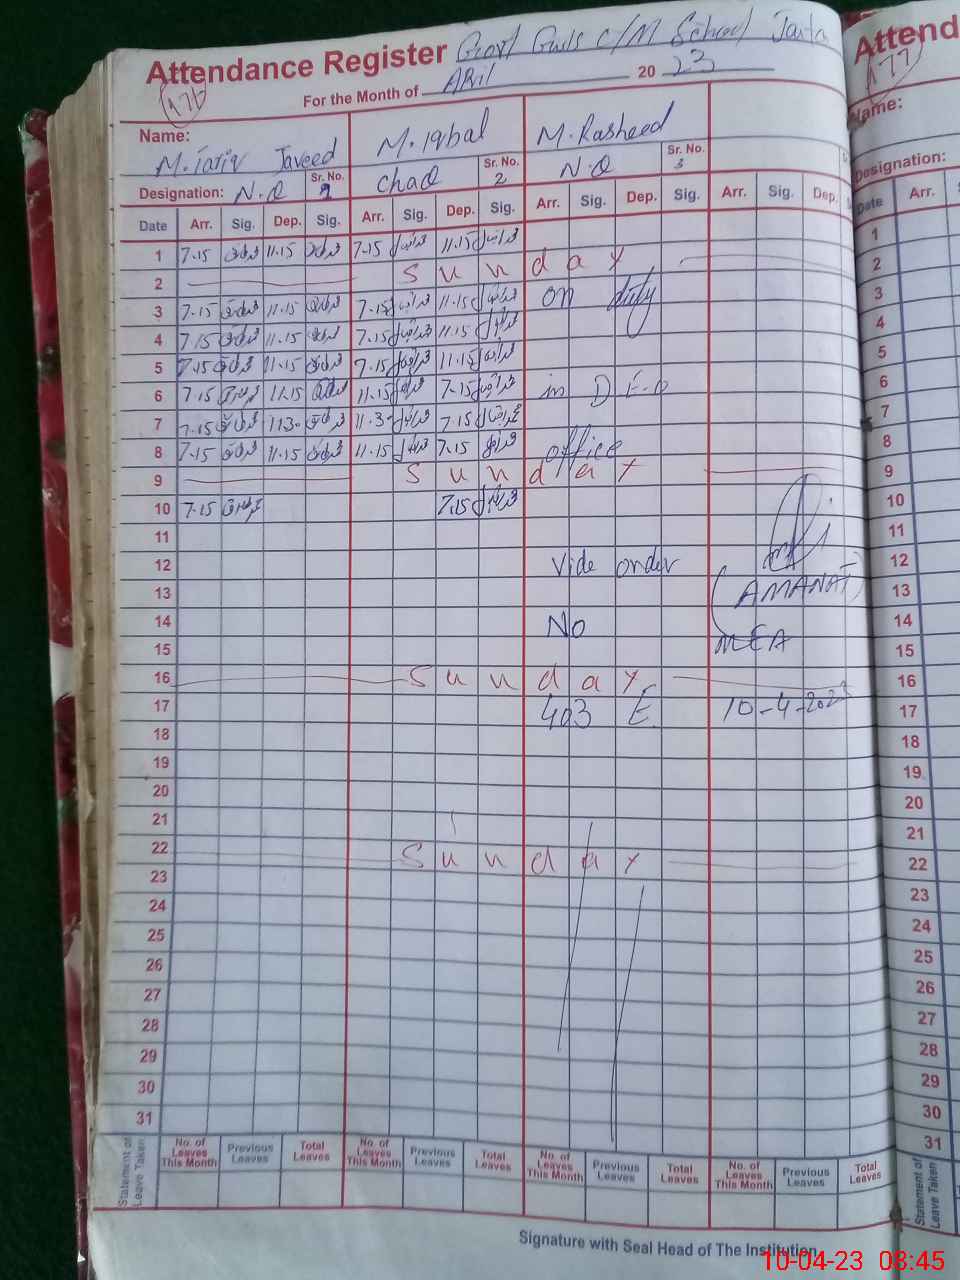 Attendance Register Govt Girls C/M School
176
For the Month of APRil 20 23
Name: M. Tariq Javeed M. Iqbal M. Rasheed
Designation: N.Q Sr. No. 1 Chaq Sr. No. 2 N.Q Sr. No. 3
Date Arr. Sig. Dep. Sig. Arr. Sig. Dep. Sig. Arr. Sig. Dep. Sig. Arr. Sig. Dep.
1 7.15 11.15 7.15 11.15
2 Sunday
3 7.15 11.15 7.15 11.15 on duty
4 7.15 11.15 7.15 11.15
5 7.15 11.15 7.15 11.15
6 7.15 11.15 11.15 7.15 in D E O
7 7.15 11.30 11.30 7.15
8 7.15 11.15 11.15 7.15 office
9 Sunday
10 7.15 7.15
11
12 Vide order
13 (AMANAT)
14 No
15 MEA
16 Sunday
17 403 E 10-4-2023
18
19
20
21
22 Sunday
23
24
25
26
27
28
29
30
31
Statement of Leave Taken
No. of Leaves This Month Previous Leaves Total Leaves No. of Leaves This Month Previous Leaves Total Leaves No. of Leaves This Month Previous Leaves Total Leaves No. of Leaves This Month Previous Leaves Total Leaves
Signature with Seal Head of The Institution
Attend
177
Name:
Designation:
Date Arr.
1
2
3
4
5
6
7
8
9
10
11
12
13
14
15
16
17
18
19
20
21
22
23
24
25
26
27
28
29
30
31
Statement of Leave Taken
10-04-23 08:45